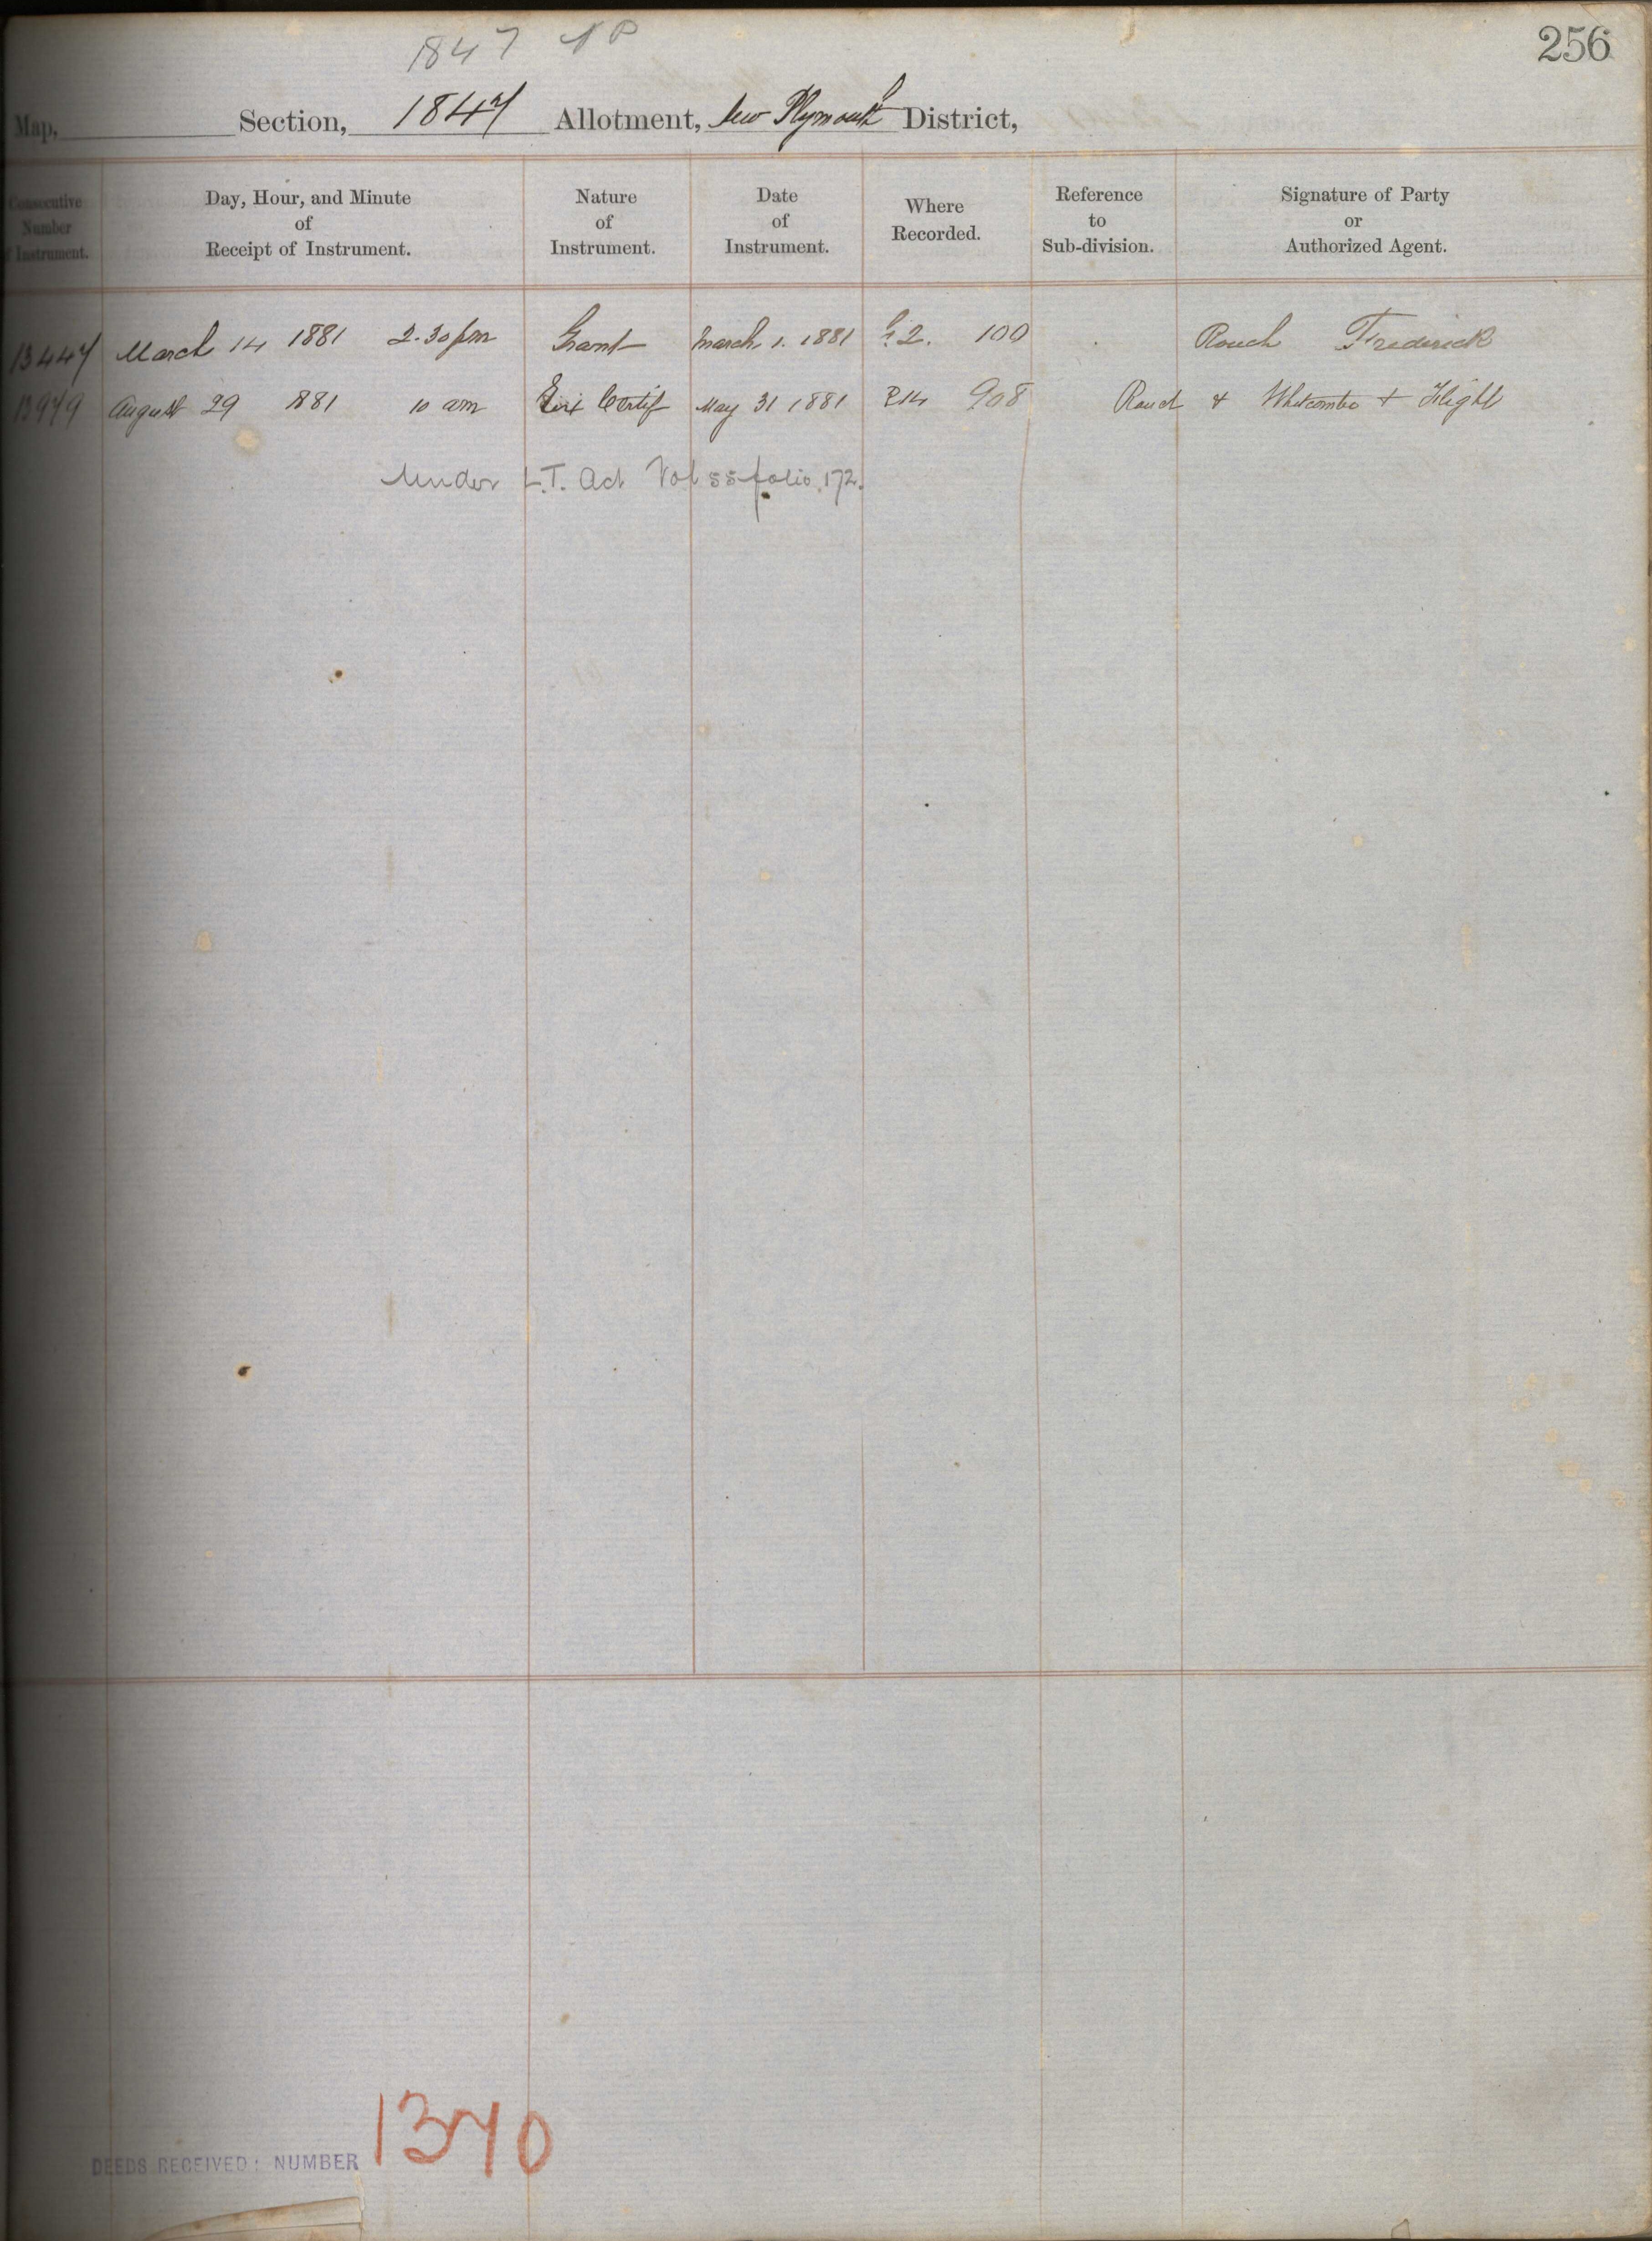 1847 NP
256
Map, Section, 1847 Allotment, New Plymouth District,
Consecutive Number of Instrument. Day, Hour, and Minute of Receipt of Instrument. Nature of Instrument. Date of Instrument. Where Recorded. Reference to Sub-division. Signature of Party or Authorized Agent.
13447 March 14 1881 2.30 pm Grant March 1. 1881 G 2. 100 Rouch Frederick
13979 August 29 1881 10 am Certif May 31 1881 R14 908 Rouch & Whitcombe + Flight
Under L.T. Act Vol 55 folio 172.
DEEDS RECEIVED: NUMBER 1370